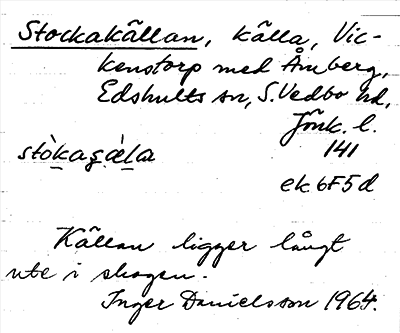 Stockakällan, källa, Vic-
kenstorp med Åmberg,
Edshults sn, S. Vedbo hd,
Jönk. l.
stòkaɕæ̀la 141
ek 6F5d
Källan ligger långt
ute i skogen.
Inger Danielsson 1964.